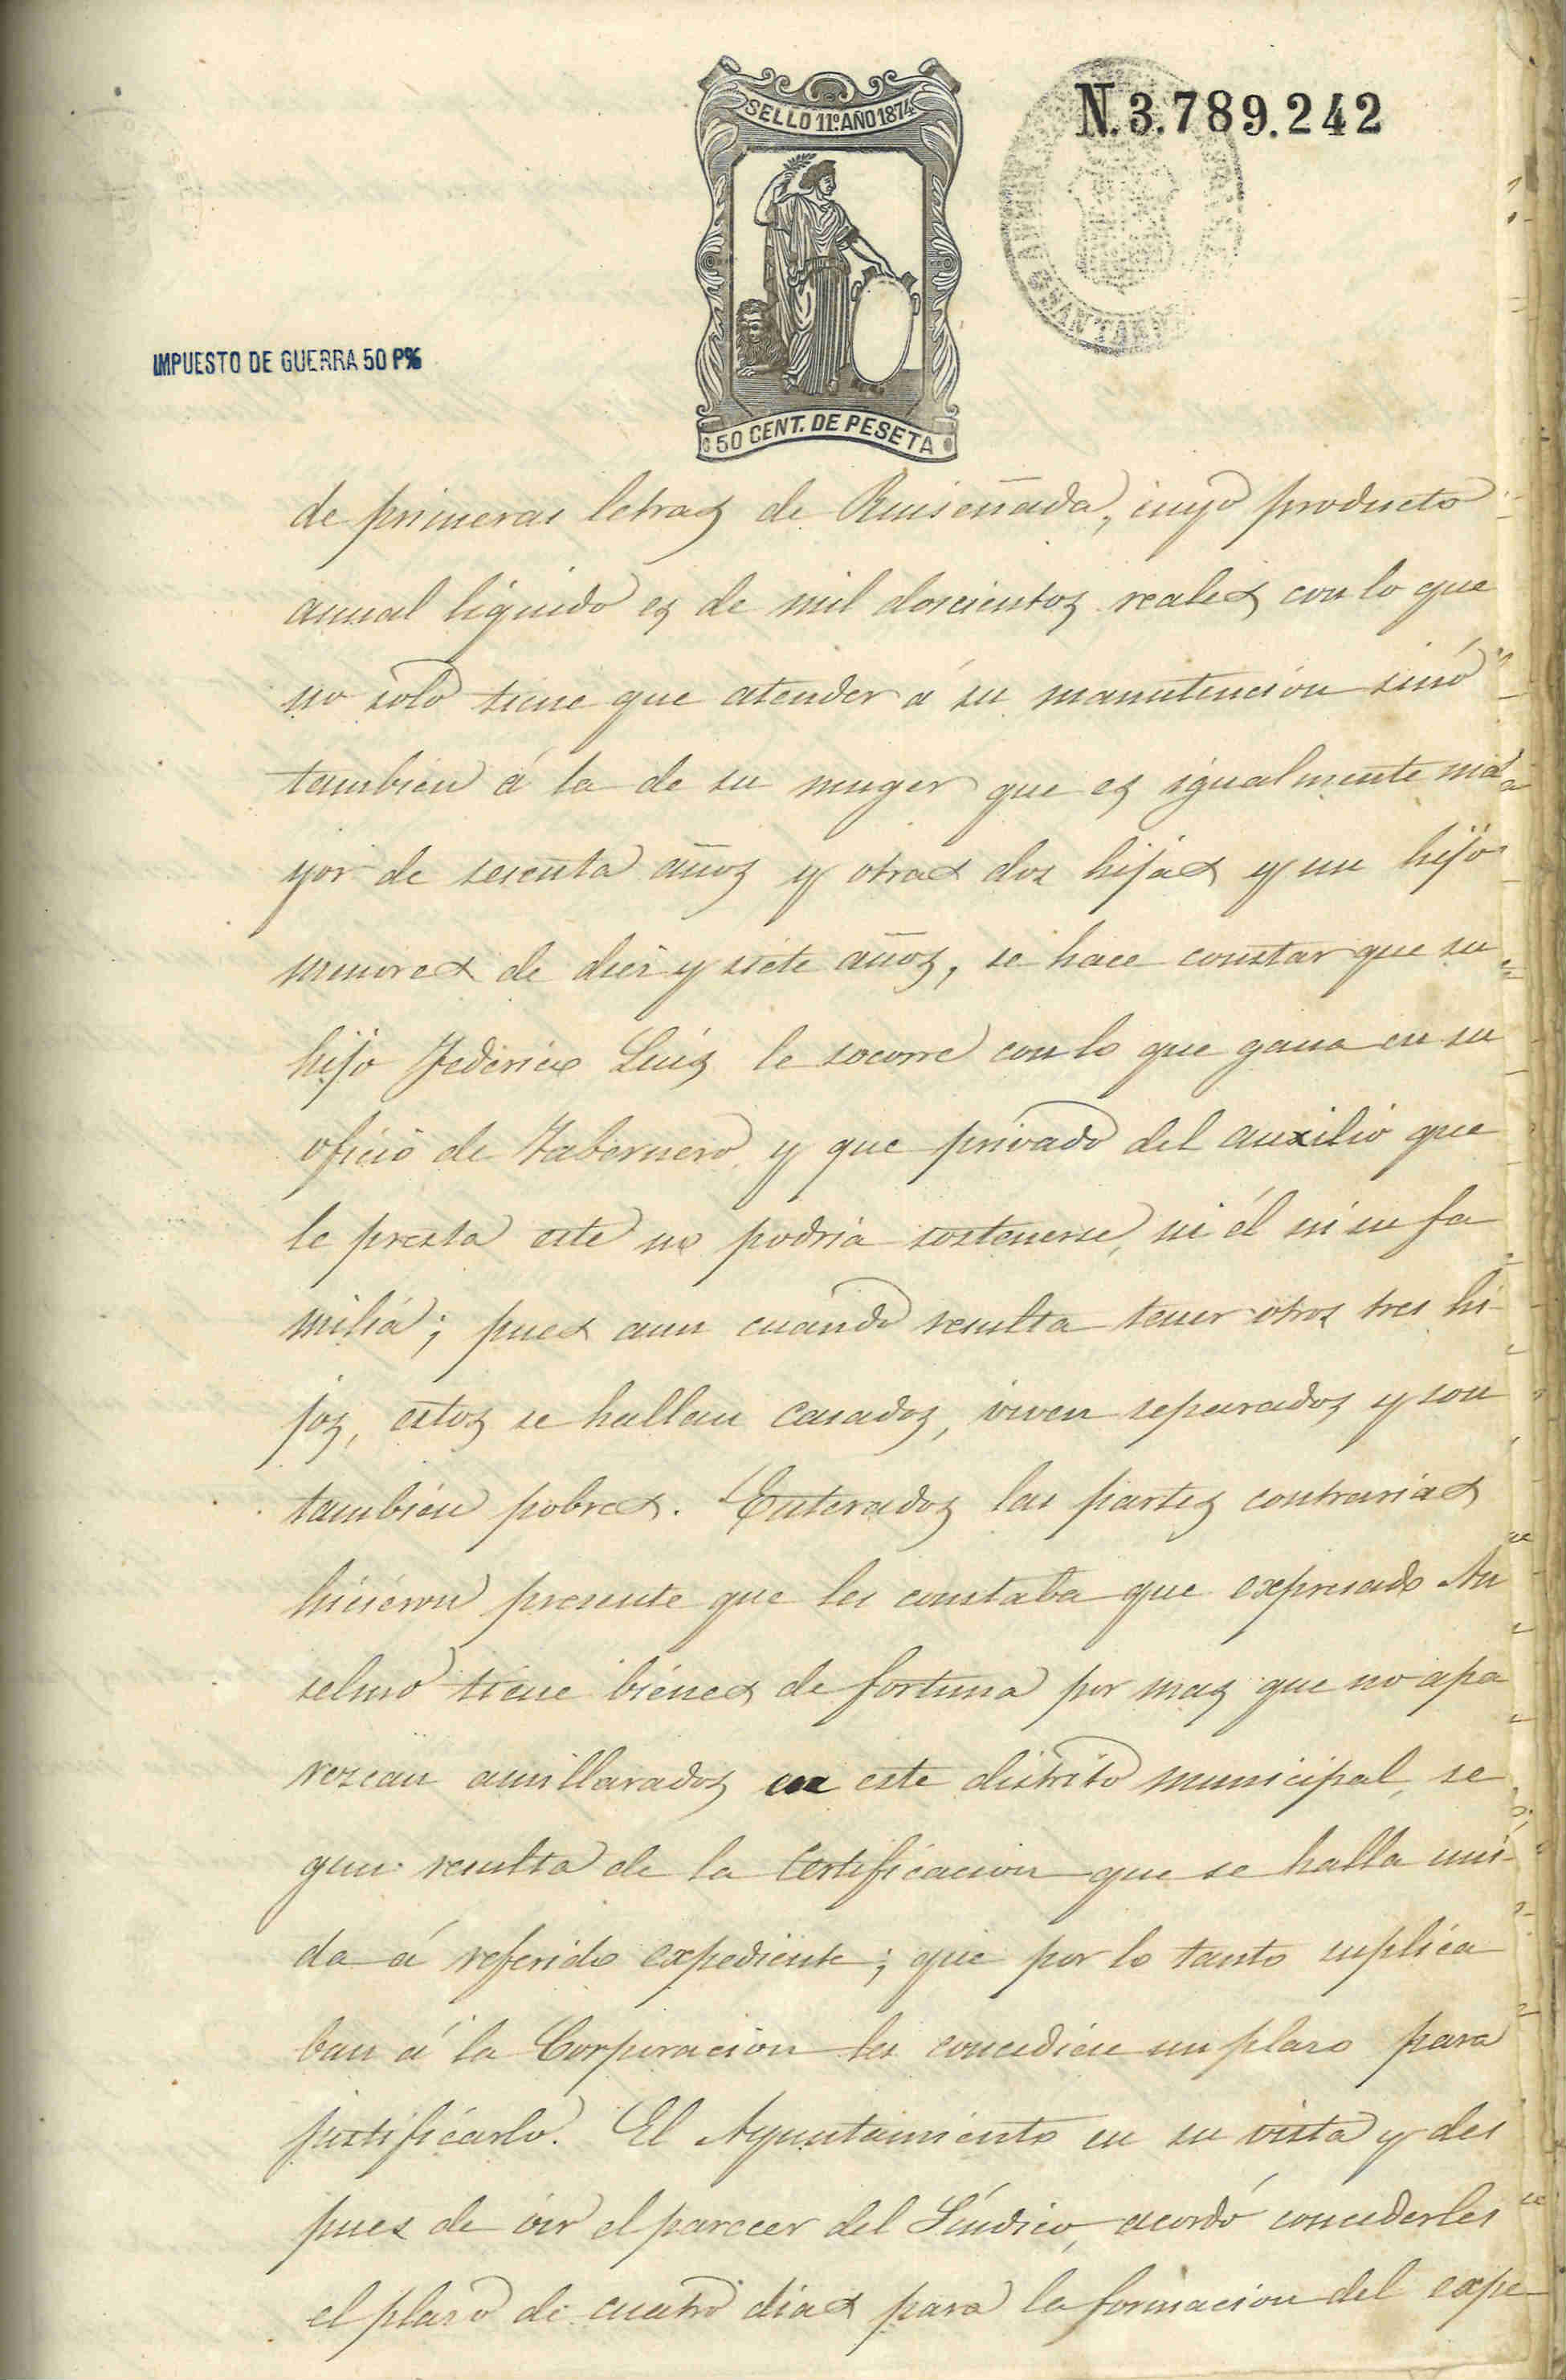 SELLO 11º AÑO 1874
N.3.789.242
IMPUESTO DE GUERRA 50 P%
50 CENT. DE PESETA
de primeras letras de Ruiseñada, cuyo producto
anual liquido es de mil doscientos reales con lo que
no solo tiene que atender á su manutencion sinó
tambien á la de su muger que es igualmente ma
yor de sesenta años y otras dos hijas y un hijo
menores de diez y siete años, se hace constar que su
hijo Federico Luis le socorre con lo que gana en su
oficio de Tabernero y que privado del auxilio que
le presta este no podria sostenerse, ni él ni su fa
milia; pues aun cuando resulta tener otros tres hi-
jos, estos se hallan casados, viven separados y son
tambien pobres. Enterados las partes contrarias
hicieron presente que les constaba que expresado An
selmo tiene bienes de fortuna por mas que no apa
rezcan amillarados en este distrito municipal, se
gun resulta de la certificacion que se halla uni-
da á referido expediente; que por lo tanto suplica
ban á la Corporacion les concediese un plazo para
justificarlo. El Ayuntamiento en su vista y des
pues de oir el parecer del Síndico, acordó concederles
el plazo de cuatro dias para la formacion del expe